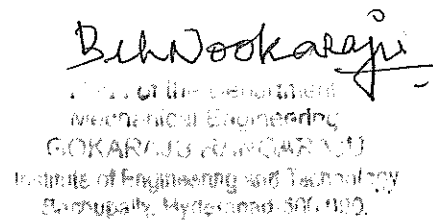 Bch Nookaraju
of the Department
Mechanical Engineering
GOKARAJU RANGARAJU
Institute of Engineering and Technology
Bachupally, Hyderabad-500 090.